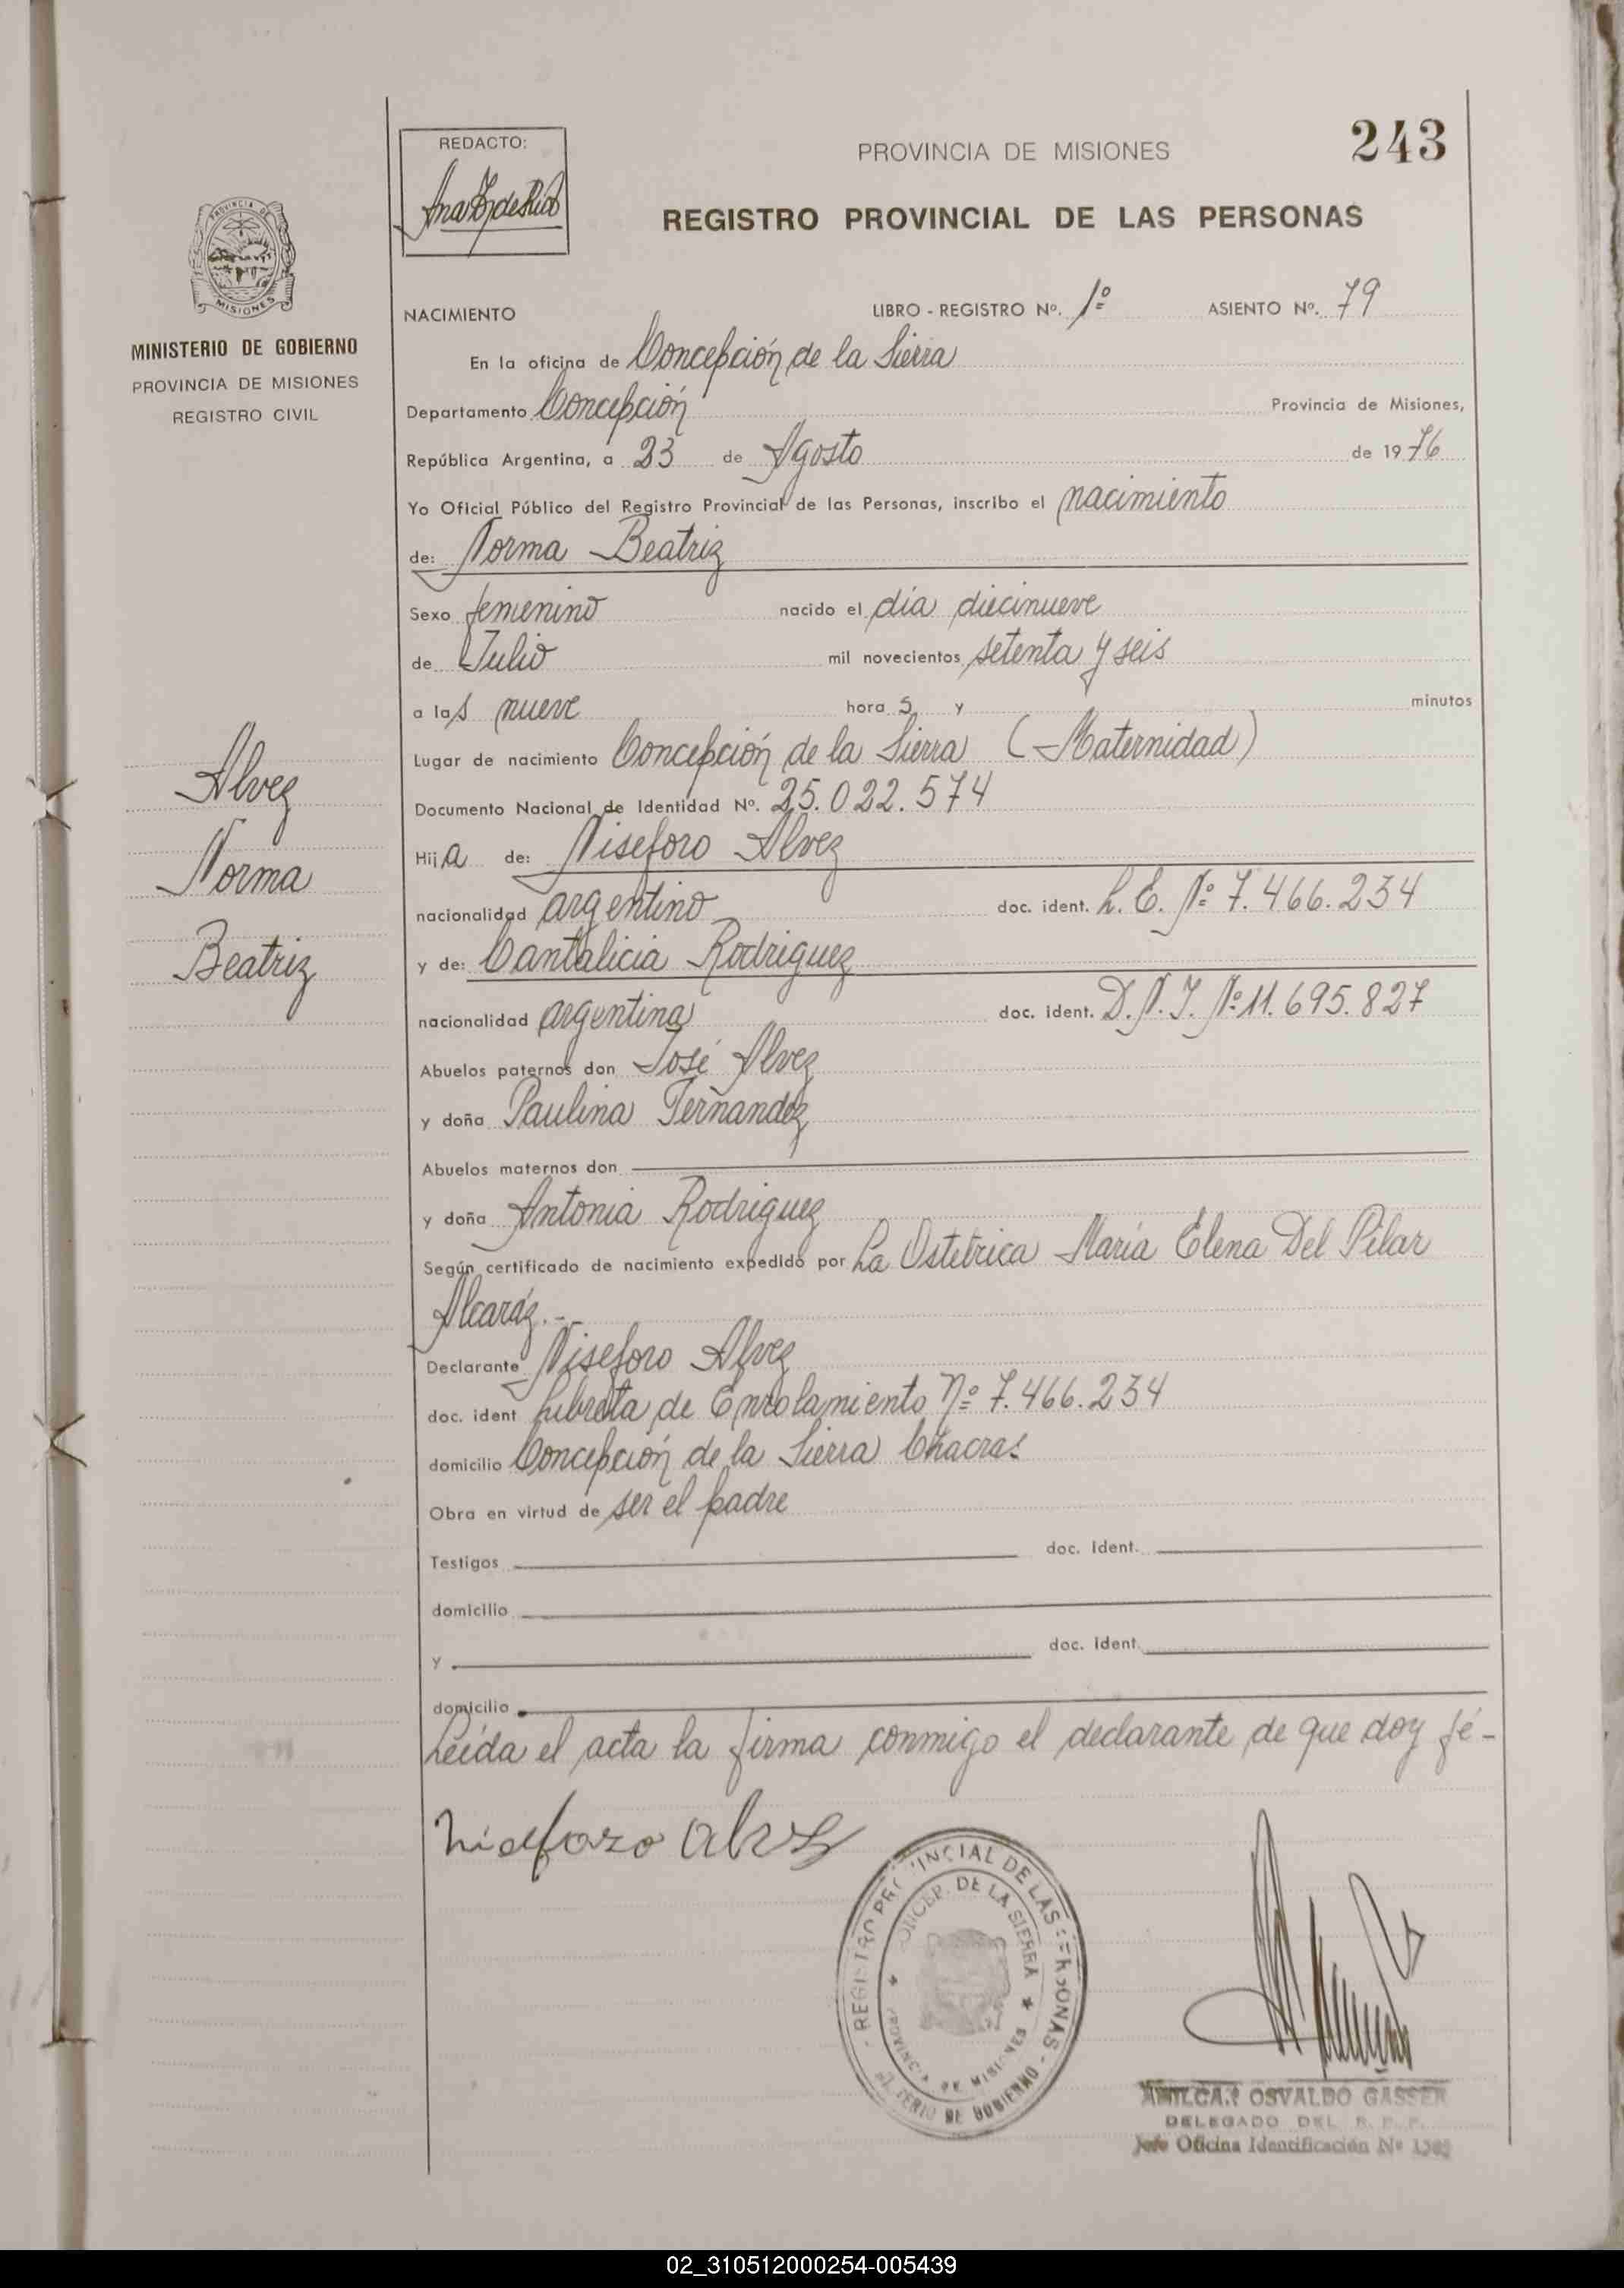 REDACTO:
PROVINCIA DE MISIONES
243
REGISTRO PROVINCIAL DE LAS PERSONAS
PROVINCIA DE
MISIONES
MINISTERIO DE GOBIERNO
PROVINCIA DE MISIONES
REGISTRO CIVIL
NACIMIENTO LIBRO - REGISTRO Nº. 1º ASIENTO Nº. 79
En la oficina de Concepción de la Sierra
Departamento Concepción Provincia de Misiones,
República Argentina, a 23 de Agosto de 1976
Yo Oficial Público del Registro Provincial de las Personas, inscribo el nacimiento
de: Norma Beatriz
Sexo femenino nacido el día diecinueve
de Julio mil novecientos setenta y seis
a las nueve hora s y minutos
Lugar de nacimiento Concepción de la Sierra (Maternidad)
Documento Nacional de Identidad Nº. 25.022.574
Hija de: Niseforo Alvez
nacionalidad argentino doc. ident. L. E. Nº 7.466.234
y de: Cantalicia Rodriguez
nacionalidad argentina doc. ident. D. N. I. Nº 11.695.827
Abuelos paternos don José Alvez
y doña Paulina Fernandez
Abuelos maternos don
y doña Antonia Rodriguez
Según certificado de nacimiento expedido por La Ostetrica María Elena Del Pilar
Alcaráz.-
Declarante Niseforo Alvez
doc. ident Libreta de Enrolamiento Nº 7.466.234
domicilio Concepción de la Sierra Chacras
Obra en virtud de ser el padre
Testigos doc. Ident.
domicilio
y doc. ident.
domicilio
Leída el acta la firma conmigo el declarante de que doy fé-
Alvez
Norma
Beatriz
Niseforo Alvez
REGISTRO PROVINCIAL DE LAS PERSONAS
CONCEP. DE LA SIERRA
PROVINCIA DE MISIONES
MINISTERIO DE GOBIERNO
AMILCAR OSVALDO GASSER
DELEGADO DEL R. P. P.
Jefe Oficina Identificación Nº
02_310512000254-005439